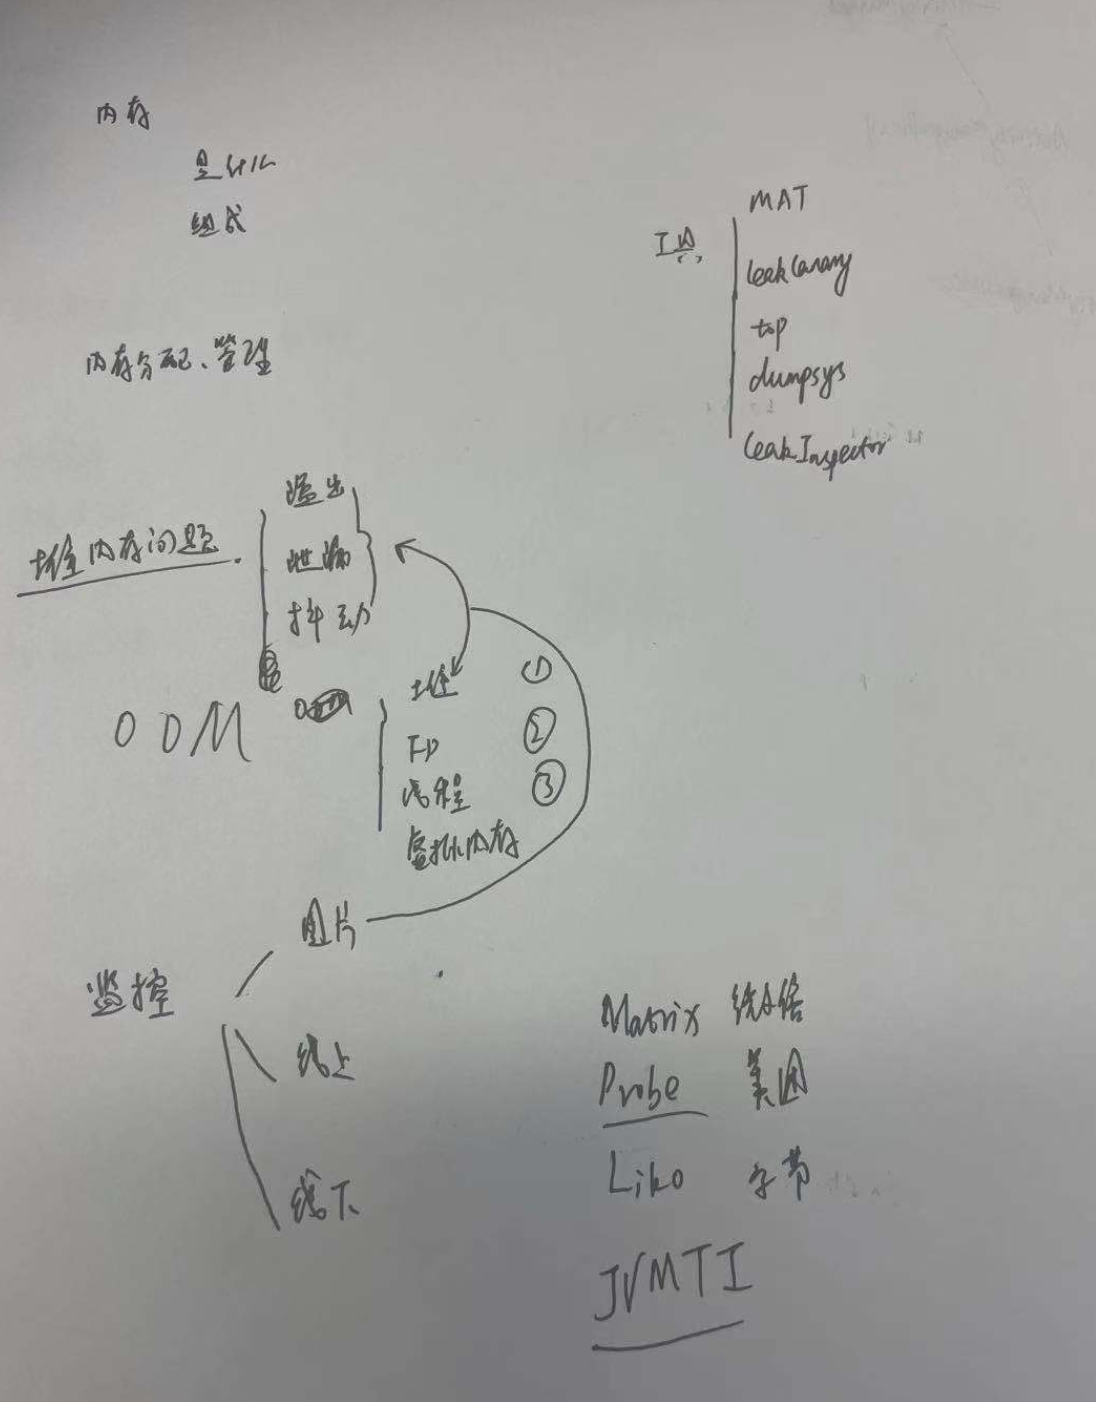 内存
是什么
组成
内存分配、管理
工具
MAT
leakCanary
top
dumpsys
leakInspector
堆内存问题
溢出
泄漏
抖动
OOM
堆 ①
FD ②
线程 ③
虚拟内存
监控
图片
线上
线下
Matrix
Probe 美团
Liko 字节
JVMTI